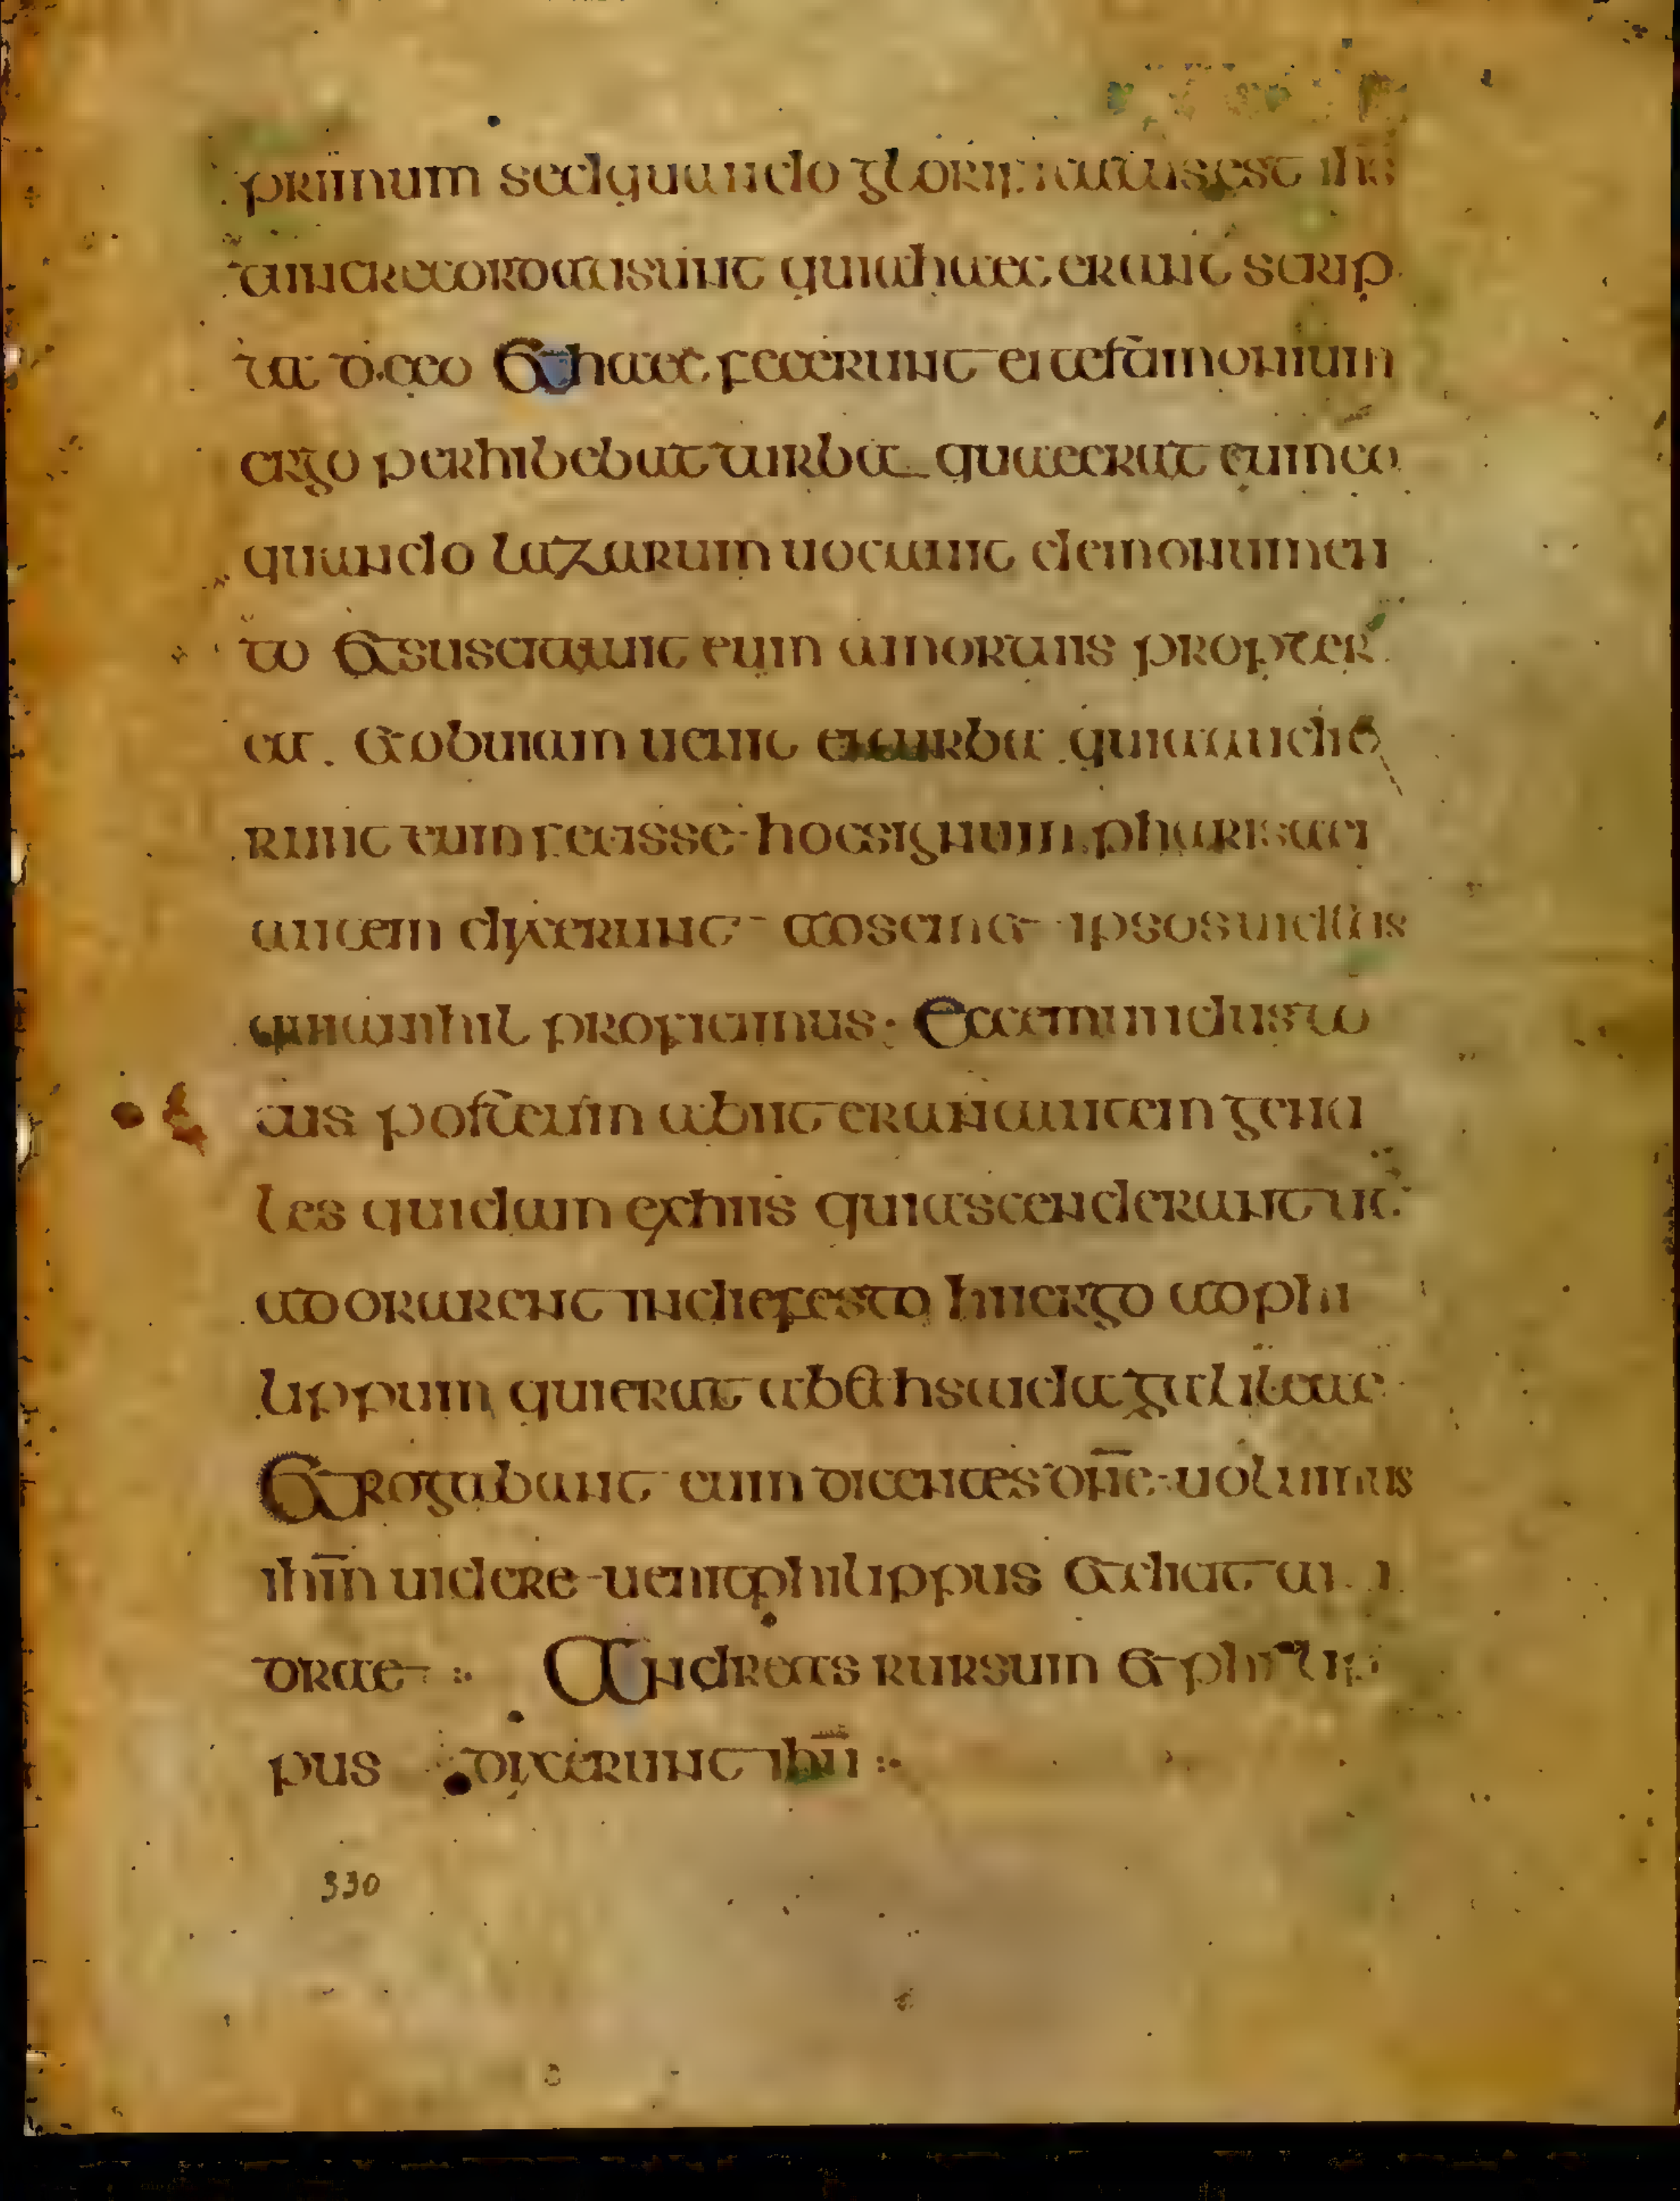 primum sed quando glorificatus est ihs
tunc recordati sunt quia haec erant scrip
ta de eo Et haec fecerunt ei testimonium
ergo perhibebat turba quae erat cum eo
quando lazarum uocauit de monumen
to et suscitauit eum a mortuis propter
ea. et obuiam uenit ei turba quia audie
runt eum fecisse hoc signum pharisaei
autem dixerunt ad semet ipsos uidetis
quia nihil proficimus Ecce mundus to
tus post eum abiit erant autem genti
les quidam ex hiis qui ascenderant ut
adorarent in die festo hii ergo ad phi
lippum qui erat a bethsaida galileae
Et rogabant eum dicentes dne uolumus
ihm uidere uenit philippus et dicit an
dreae :. Andreas rursum et philip
pus dixerunt ihu :.
330